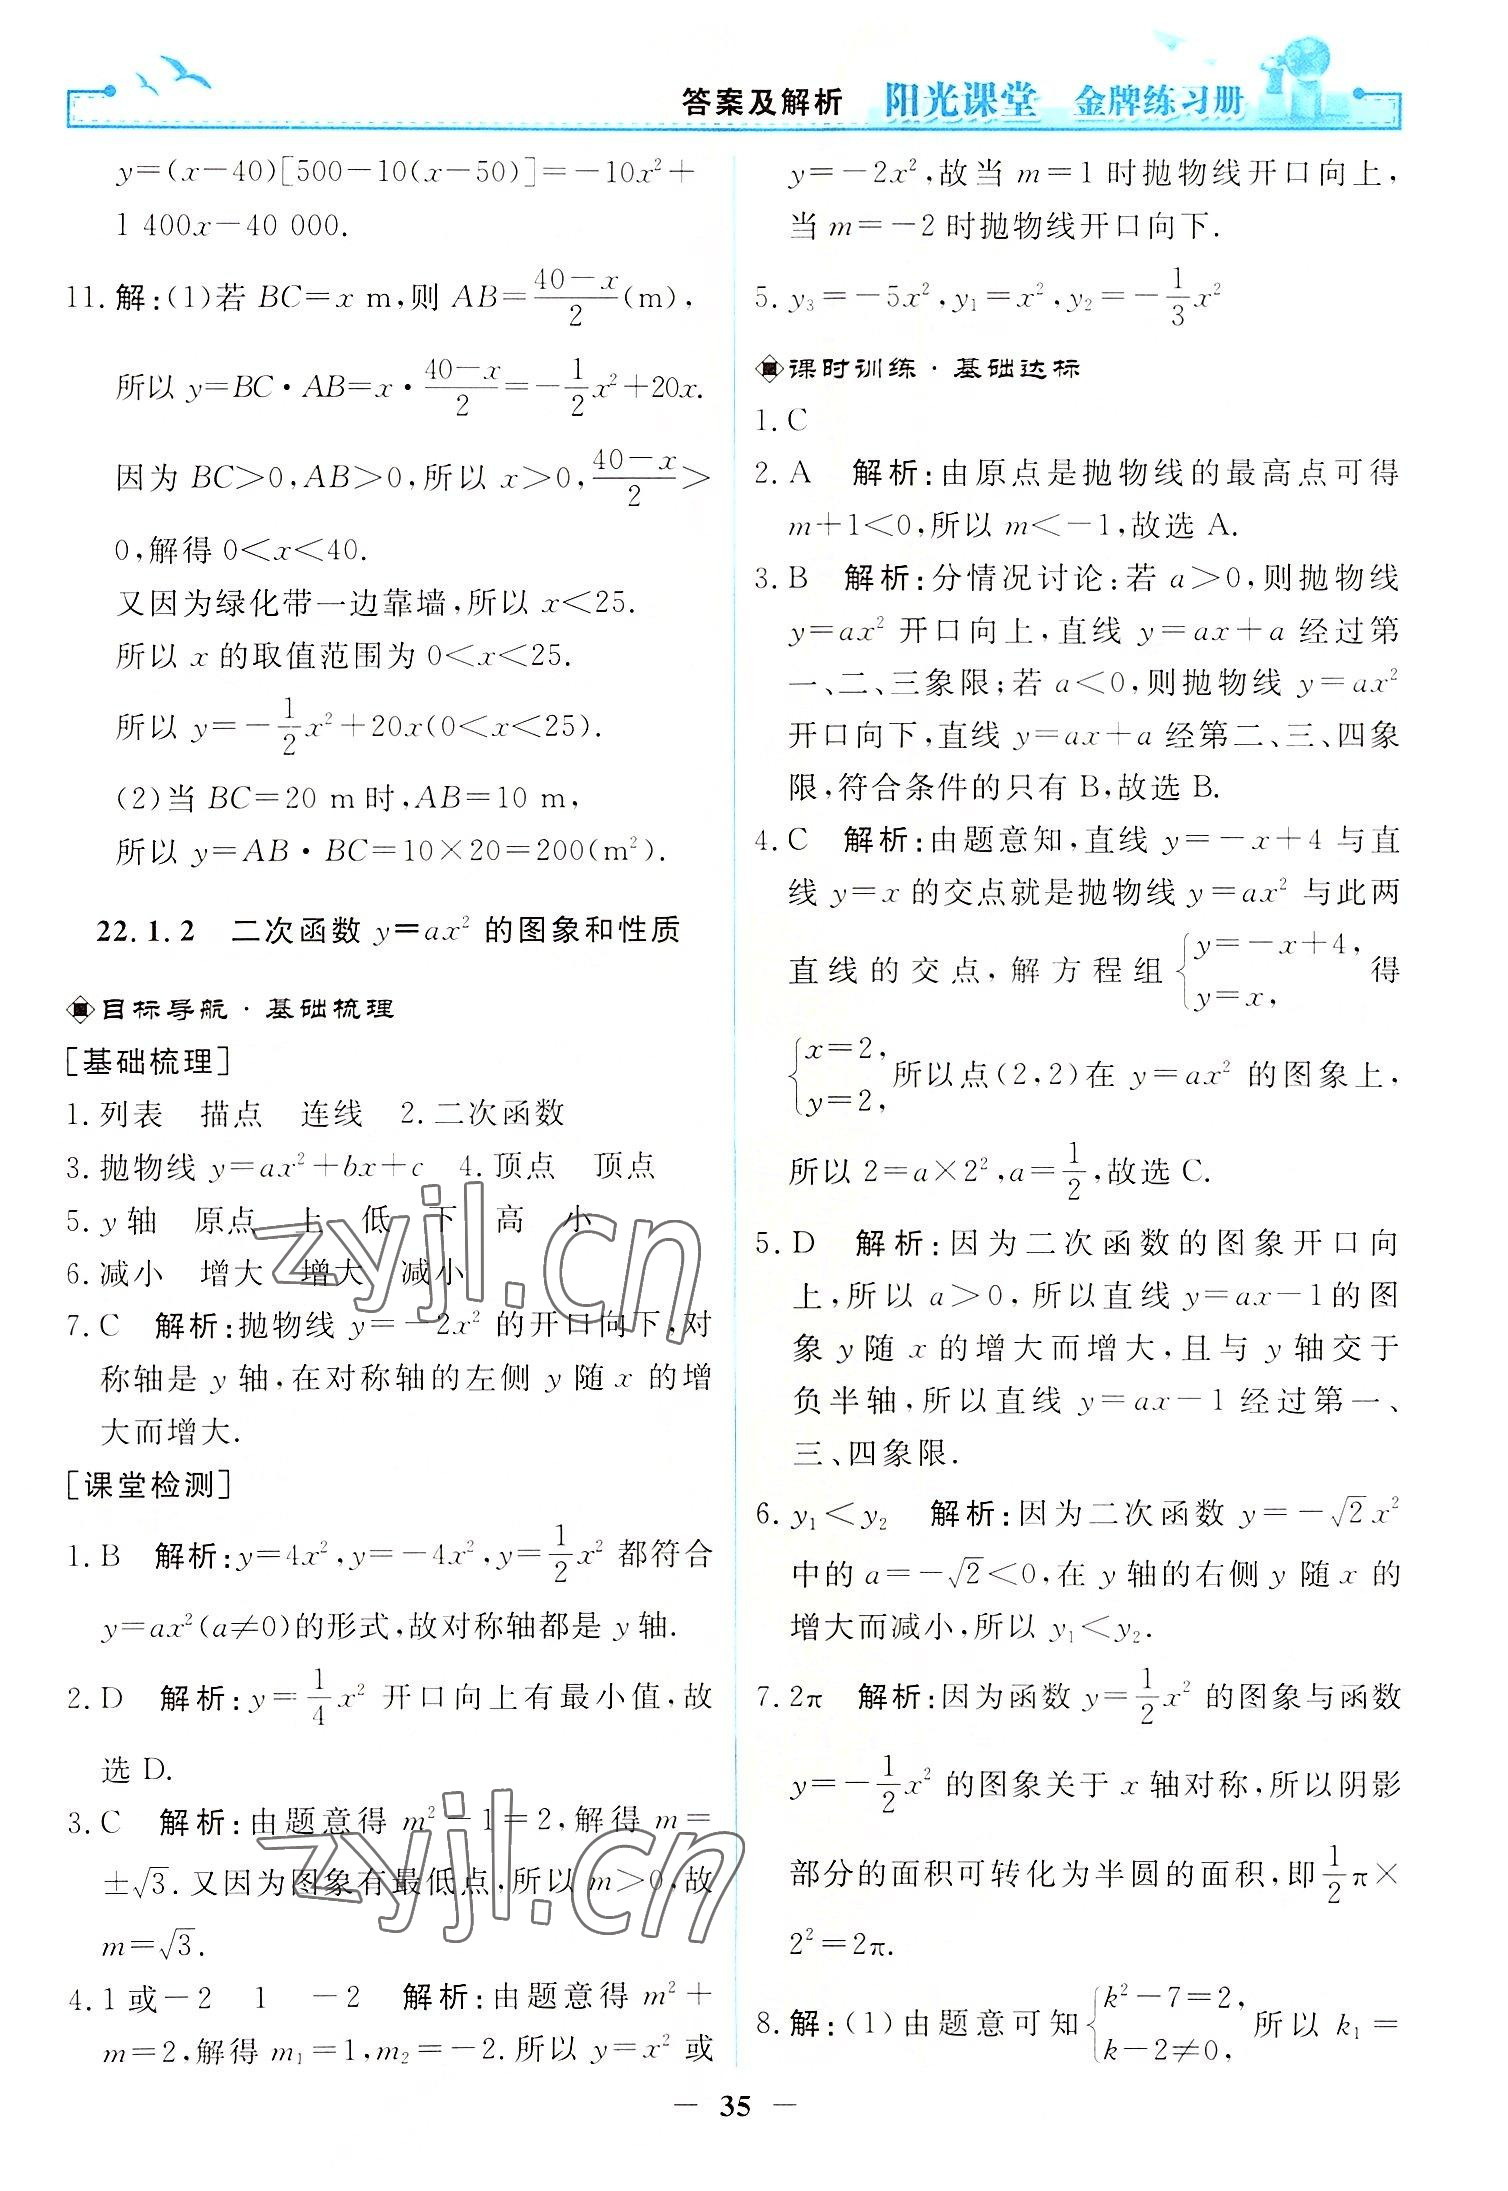 答案及解析 阳光课堂 金牌练习册
y=(x-40)[500-10(x-50)]=-10x²+
1 400x-40 000.
11. 解:(1)若 BC=x m,则 AB=\frac{40-x}{2}(m),
所以 y=BC·AB=x·\frac{40-x}{2}=-\frac{1}{2}x²+20x.
因为 BC>0,AB>0,所以 x>0,\frac{40-x}{2}>
0,解得 0<x<40.
又因为绿化带一边靠墙,所以 x<25.
所以 x 的取值范围为 0<x<25.
所以 y=-\frac{1}{2}x²+20x(0<x<25).
(2)当 BC=20 m 时,AB=10 m,
所以 y=AB·BC=10×20=200(m²).
22.1.2 二次函数 y=ax² 的图象和性质
目标导航·基础梳理
[基础梳理]
1. 列表 描点 连线 2. 二次函数
3. 抛物线 y=ax²+bx+c 4. 顶点 顶点
5. y轴 原点 上 低 下 高 小
6. 减小 增大 增大 减小
7. C 解析:抛物线 y=-2x² 的开口向下,对
称轴是 y 轴,在对称轴的左侧 y 随 x 的增
大而增大.
[课堂检测]
1. B 解析:y=4x²,y=-4x²,y=\frac{1}{2}x² 都符合
y=ax²(a≠0)的形式,故对称轴都是 y 轴.
2. D 解析:y=\frac{1}{4}x² 开口向上有最小值,故
选 D.
3. C 解析:由题意得 m²-1=2,解得 m=
±√3. 又因为图象有最低点,所以 m>0,故
m=√3.
4. 1 或-2 1 -2 解析:由题意得 m²+
m=2,解得 m₁=1,m₂=-2. 所以 y=x² 或
y=-2x²,故当 m=1 时抛物线开口向上,
当 m=-2 时抛物线开口向下.
5. y₃=-5x²,y₁=x²,y₂=-\frac{1}{3}x²
课时训练·基础达标
1. C
2. A 解析:由原点是抛物线的最高点可得
m+1<0,所以 m<-1,故选 A.
3. B 解析:分情况讨论:若 a>0,则抛物线
y=ax² 开口向上,直线 y=ax+a 经过第
一、二、三象限;若 a<0,则抛物线 y=ax²
开口向下,直线 y=ax+a 经第二、三、四象
限,符合条件的只有 B,故选 B.
4. C 解析:由题意知,直线 y=-x+4 与直
线 y=x 的交点就是抛物线 y=ax² 与此两
直线的交点,解方程组{y=-x+4, y=x,得
{x=2, y=2,所以点(2,2)在 y=ax² 的图象上,
所以 2=a×2²,a=\frac{1}{2},故选 C.
5. D 解析:因为二次函数的图象开口向
上,所以 a>0,所以直线 y=ax-1的图
象 y 随 x 的增大而增大,且与 y 轴交于
负半轴,所以直线 y=ax-1 经过第一、
三、四象限.
6. y₁<y₂ 解析:因为二次函数 y=-√2x²
中的 a=-√2<0,在 y 轴的右侧 y 随 x 的
增大而减小,所以 y₁<y₂.
7. 2π 解析:因为函数 y=\frac{1}{2}x² 的图象与函数
y=-\frac{1}{2}x² 的图象关于 x 轴对称,所以阴影
部分的面积可转化为半圆的面积,即\frac{1}{2}π×
2²=2π.
8. 解:(1)由题意可知{k²-7=2, k-2≠0,所以 k₁=
— 35 —
zyjl.cn
zyjl.cn